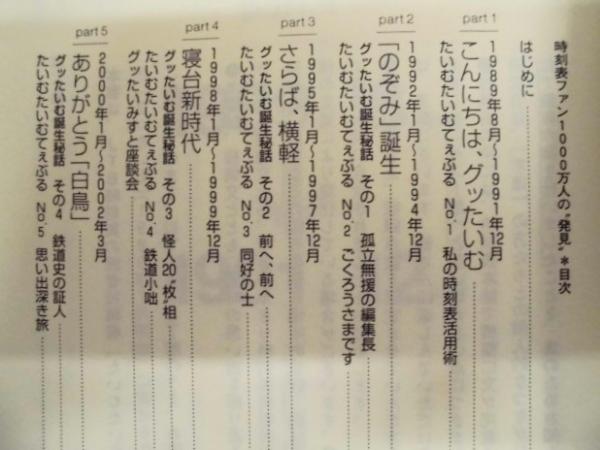 時刻表ファン1000万人の“発見”＊目次
はじめに
part 1
1989年8月〜1991年12月
こんにちは、グッたいむ
たいむたいむてぇぶる No.1 私の時刻表活用術
part 2
1992年1月〜1994年12月
「のぞみ」誕生
グッたいむ誕生秘話 その1 孤立無援の編集長
たいむたいむてぇぶる No.2 ごくろうさまです
part 3
1995年1月〜1997年12月
さらば、横軽
グッたいむ誕生秘話 その2 前へ、前へ
たいむたいむてぇぶる No.3 同好の士
part 4
1998年1月〜1999年12月
寝台新時代
グッたいむ誕生秘話 その3 怪人20“枚”相
たいむたいむてぇぶる No.4 鉄道小咄
グッたいみすと座談会
part 5
2000年1月〜2002年3月
ありがとう「白鳥」
グッたいむ誕生秘話 その4 鉄道史の証人
たいむたいむてぇぶる No.5 思い出深き旅